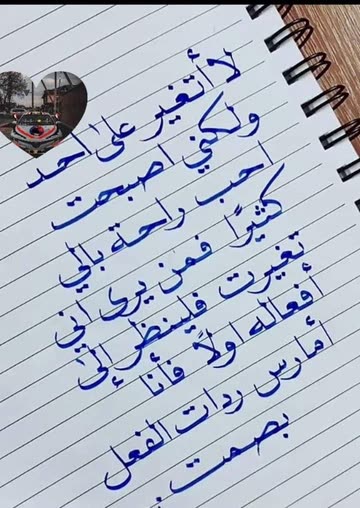 لا أتغير على احد
ولكني اصبحت
احب راحة بالي
كثيرًا فمن يرى اني
تغيرت فلينظر إلى
أفعاله اولاً فأنا
أمارس ردات الفعل
بصمت .